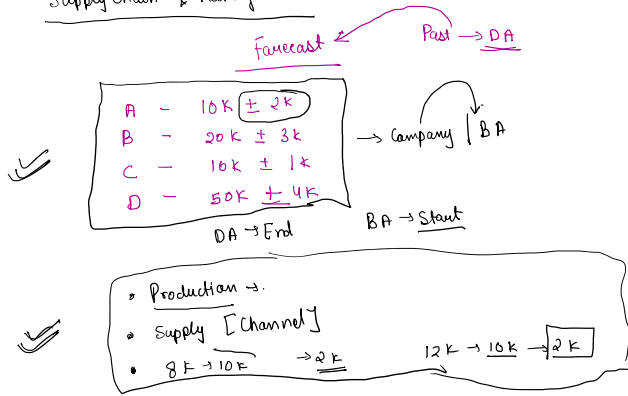 Supply Chain &
Forecast
Past → DA
A - 10K ± 2K
B - 20K ± 3K
C - 10K ± 1K
D - 50K ± 4K
→ Company | BA
DA → End
BA → Start
• Production →.
• Supply [Channel]
• 8K → 10K → 2K
12K → 10K → 2K